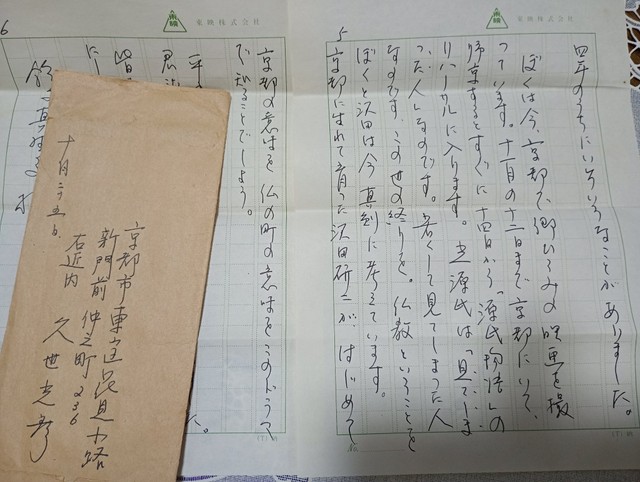 東映株式会社
5
四年のうちにいろいろなことがありました。
ぼくは今、京都で郷ひろみの映画を撮
っています。十一月の十二日まで京都にいて、
帰京するとすぐに十四日から「源氏物語」の
リハーサルに入ります。光源氏は「見てしま
った人」なのです。若くして見てしまった人
なのです、この世の終りを。仏教ということを
ぼくと沢田は今真剣に考えています。
京都に生れて育った沢田研二が、はじめて
東映株式会社
6
京都の意味を、仏の町の意味をこのドラマ
で知ることでしょう。
十月二十五日
京都市東山区花見小路
新門前仲之町236
右近内
久世光彦